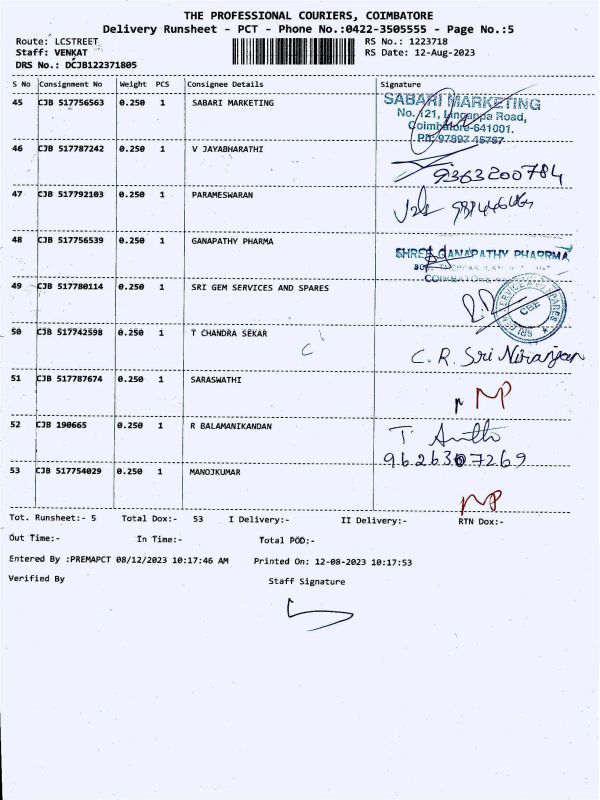 THE PROFESSIONAL COURIERS, COIMBATORE
Delivery Runsheet - PCT - Phone No.:0422-3505555 - Page No.:5
Route: LCSTREET RS No.: 1223718
Staff: VENKAT RS Date: 12-Aug-2023
DRS No.: DCJB122371805
S No Consignment No Weight PCS Consignee Details Signature
45 CJB 517756563 0.250 1 SABARI MARKETING
SABARI MARKETING
No. 121, Lingappa Road,
Coimbatore-641001.
46 CJB 517787242 0.250 1 V JAYABHARATHI
9363200784
47 CJB 517792103 0.250 1 PARAMESWARAN
48 CJB 517756539 0.250 1 GANAPATHY PHARMA
SHREE GANAPATHY PHARRMA
49 CJB 517780114 0.250 1 SRI GEM SERVICES AND SPARES
CBE
50 CJB 517742598 0.250 1 T CHANDRA SEKAR
C. R. Sri Niranjan
51 CJB 517787674 0.250 1 SARASWATHI
NP
52 CJB 190665 0.250 1 R BALAMANIKANDAN
9626307269
53 CJB 517754029 0.250 1 MANOJKUMAR
NP
Tot. Runsheet:- 5 Total Dox:- 53 I Delivery:- II Delivery:- RTN Dox:-
Out Time:- In Time:- Total POD:-
Entered By :PREMAPCT 08/12/2023 10:17:46 AM Printed On: 12-08-2023 10:17:53
Verified By Staff Signature